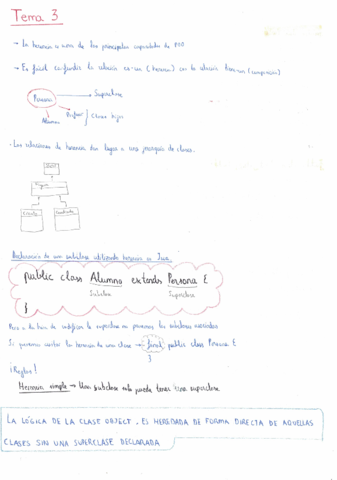 Tema 3
→ La herencia es una de las principales capacidades de POO
→ Es fácil confundir la relación es-un (herencia) con la relación tiene-un (composición)
Persona → Superclase
Alumno Profesor } Clases hijas
· Las relaciones de herencia dan lugar a una jerarquía de clases.
Figura
Círculo Cuadrado
Declaración de una subclase utilizando herencia en Java.
public class Alumno extends Persona {
Subclase Superclase
}
Pero a la hora de codificar la superclase no ponemos las subclases
Si queremos evitar la herencia de una clase → final public class Persona {
}
¡Reglas!
Herencia simple → Una subclase solo puede tener una superclase
LA LÓGICA DE LA CLASE OBJECT, ES HEREDADA DE FORMA DIRECTA DE AQUELLAS
CLASES SIN UNA SUPERCLASE DECLARADA